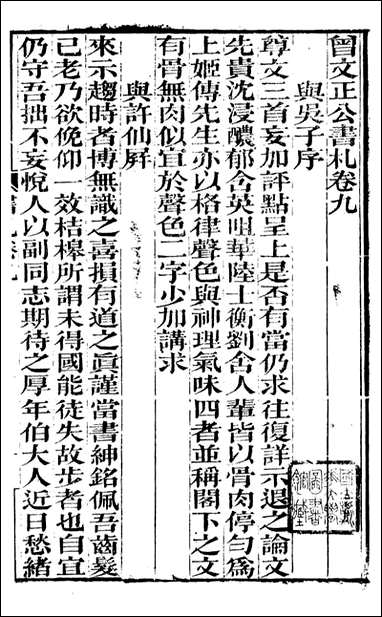 曾文正公書札卷九
與吳子序
尊文三首妄加評點呈上是否有當仍求往復詳示退之論文
先貴沈浸醲郁含英咀華陸士衡劉舍人輩皆以骨肉停勻爲
上姬傳先生亦以格律聲色與神理氣味四者並稱閣下之文
有骨無肉似宜於聲色二字少加講求
與許仙屛
來示趨時者博無識之喜損有道之眞謹當書紳銘佩吾齒髮
已老乃欲俛仰一效桔槹所謂未得國能徒失故步者也自宜
仍守吾拙不妄悅人以副同志期待之厚年伯大人近日愁緒